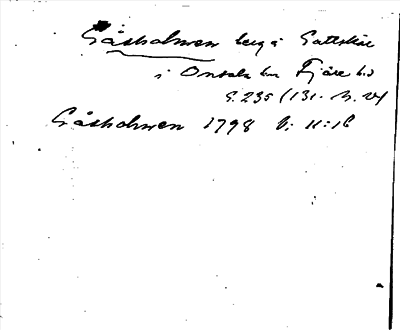 Gåsholmen berg å Gottskär
i Onsala sn Fjäre hd
S. 235 (131.
Gåsholmen 1798 6: 11:16